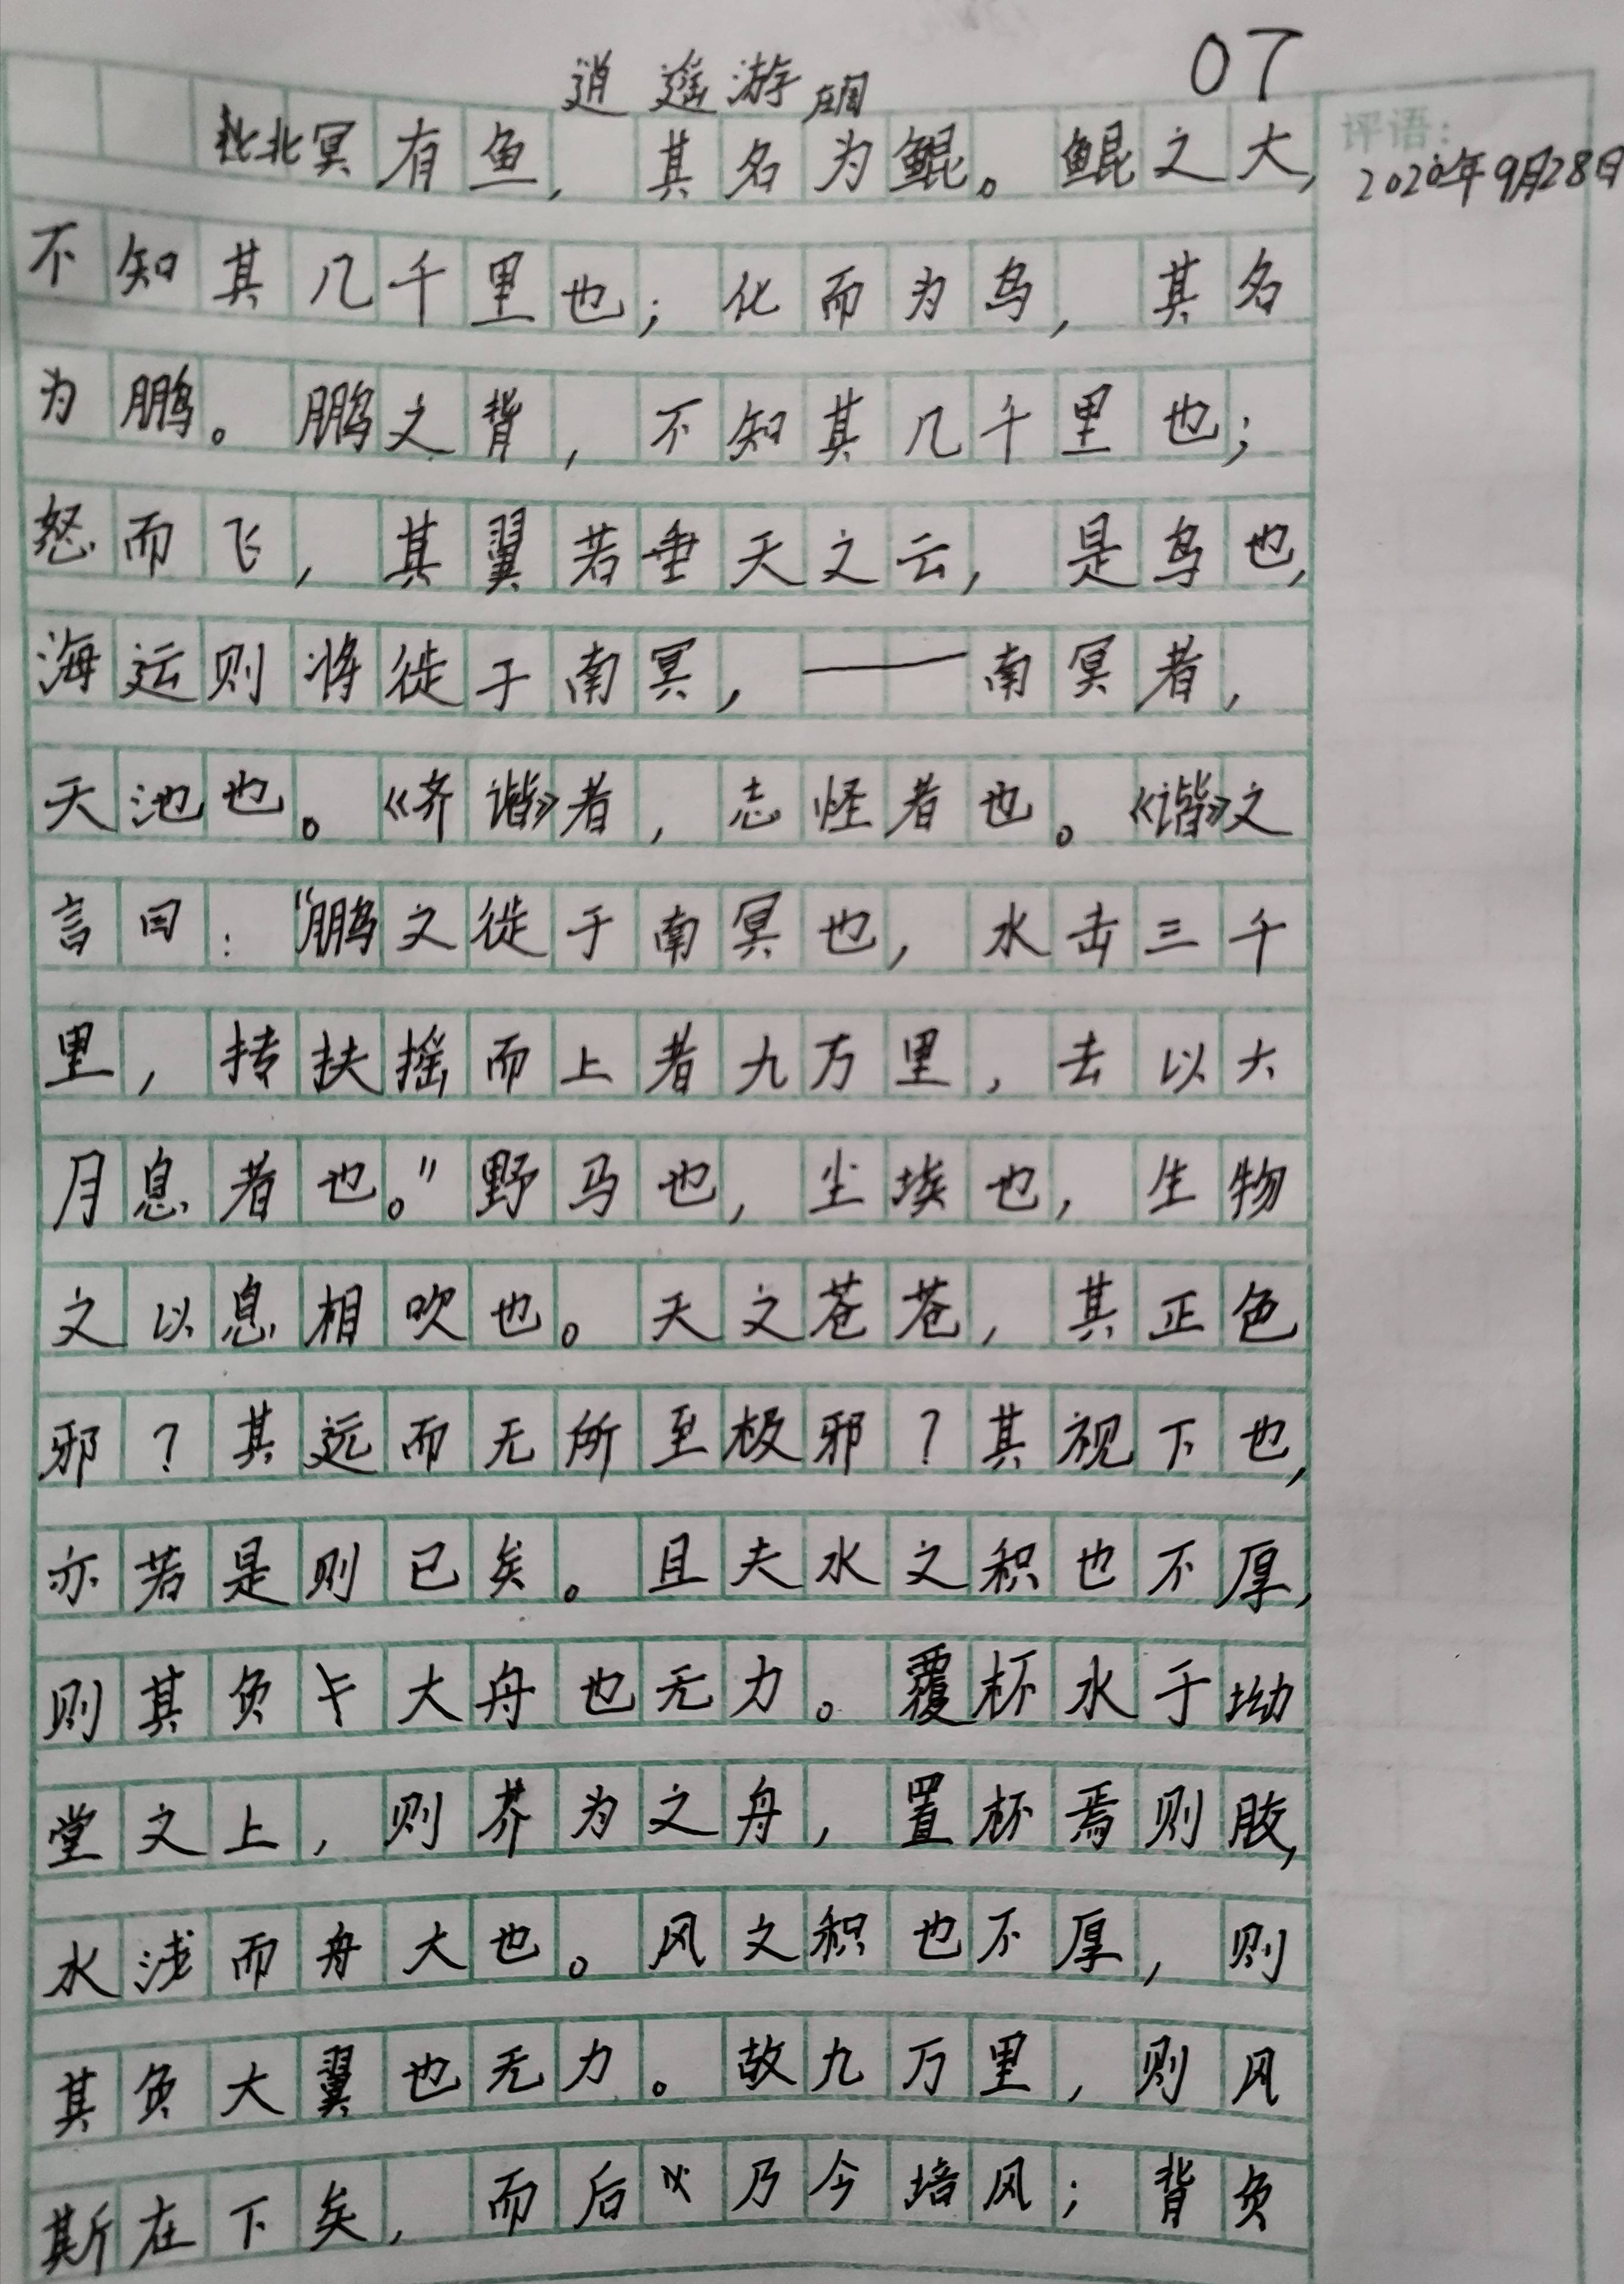 逍遥游 庄周
07
评语:
2020年9月28日
北冥有鱼，其名为鲲。鲲之大，
不知其几千里也；化而为鸟，其名
为鹏。鹏之背，不知其几千里也；
怒而飞，其翼若垂天之云，是鸟也，
海运则将徙于南冥，——南冥者，
天池也。《齐谐》者，志怪者也。《谐》之
言曰：“鹏之徙于南冥也，水击三千
里，抟扶摇而上者九万里，去以六
月息者也。”野马也，尘埃也，生物
之以息相吹也。天之苍苍，其正色
邪？其远而无所至极邪？其视下也，
亦若是则已矣。且夫水之积也不厚，
则其负大舟也无力。覆杯水于坳
堂之上，则芥为之舟，置杯焉则胶，
水浅而舟大也。风之积也不厚，则
其负大翼也无力。故九万里，则风
斯在下矣，而后乃今培风；背负